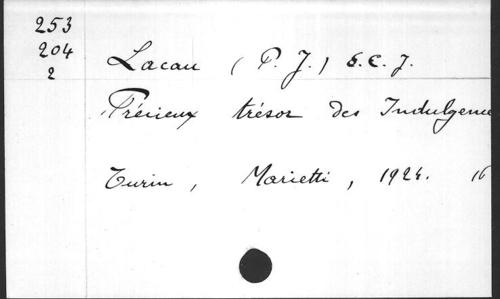 253
204
2
Lacau (P. J.) S.C.J.
Précieux trésor des Indulgence
Turin, Marietti, 1924. 16